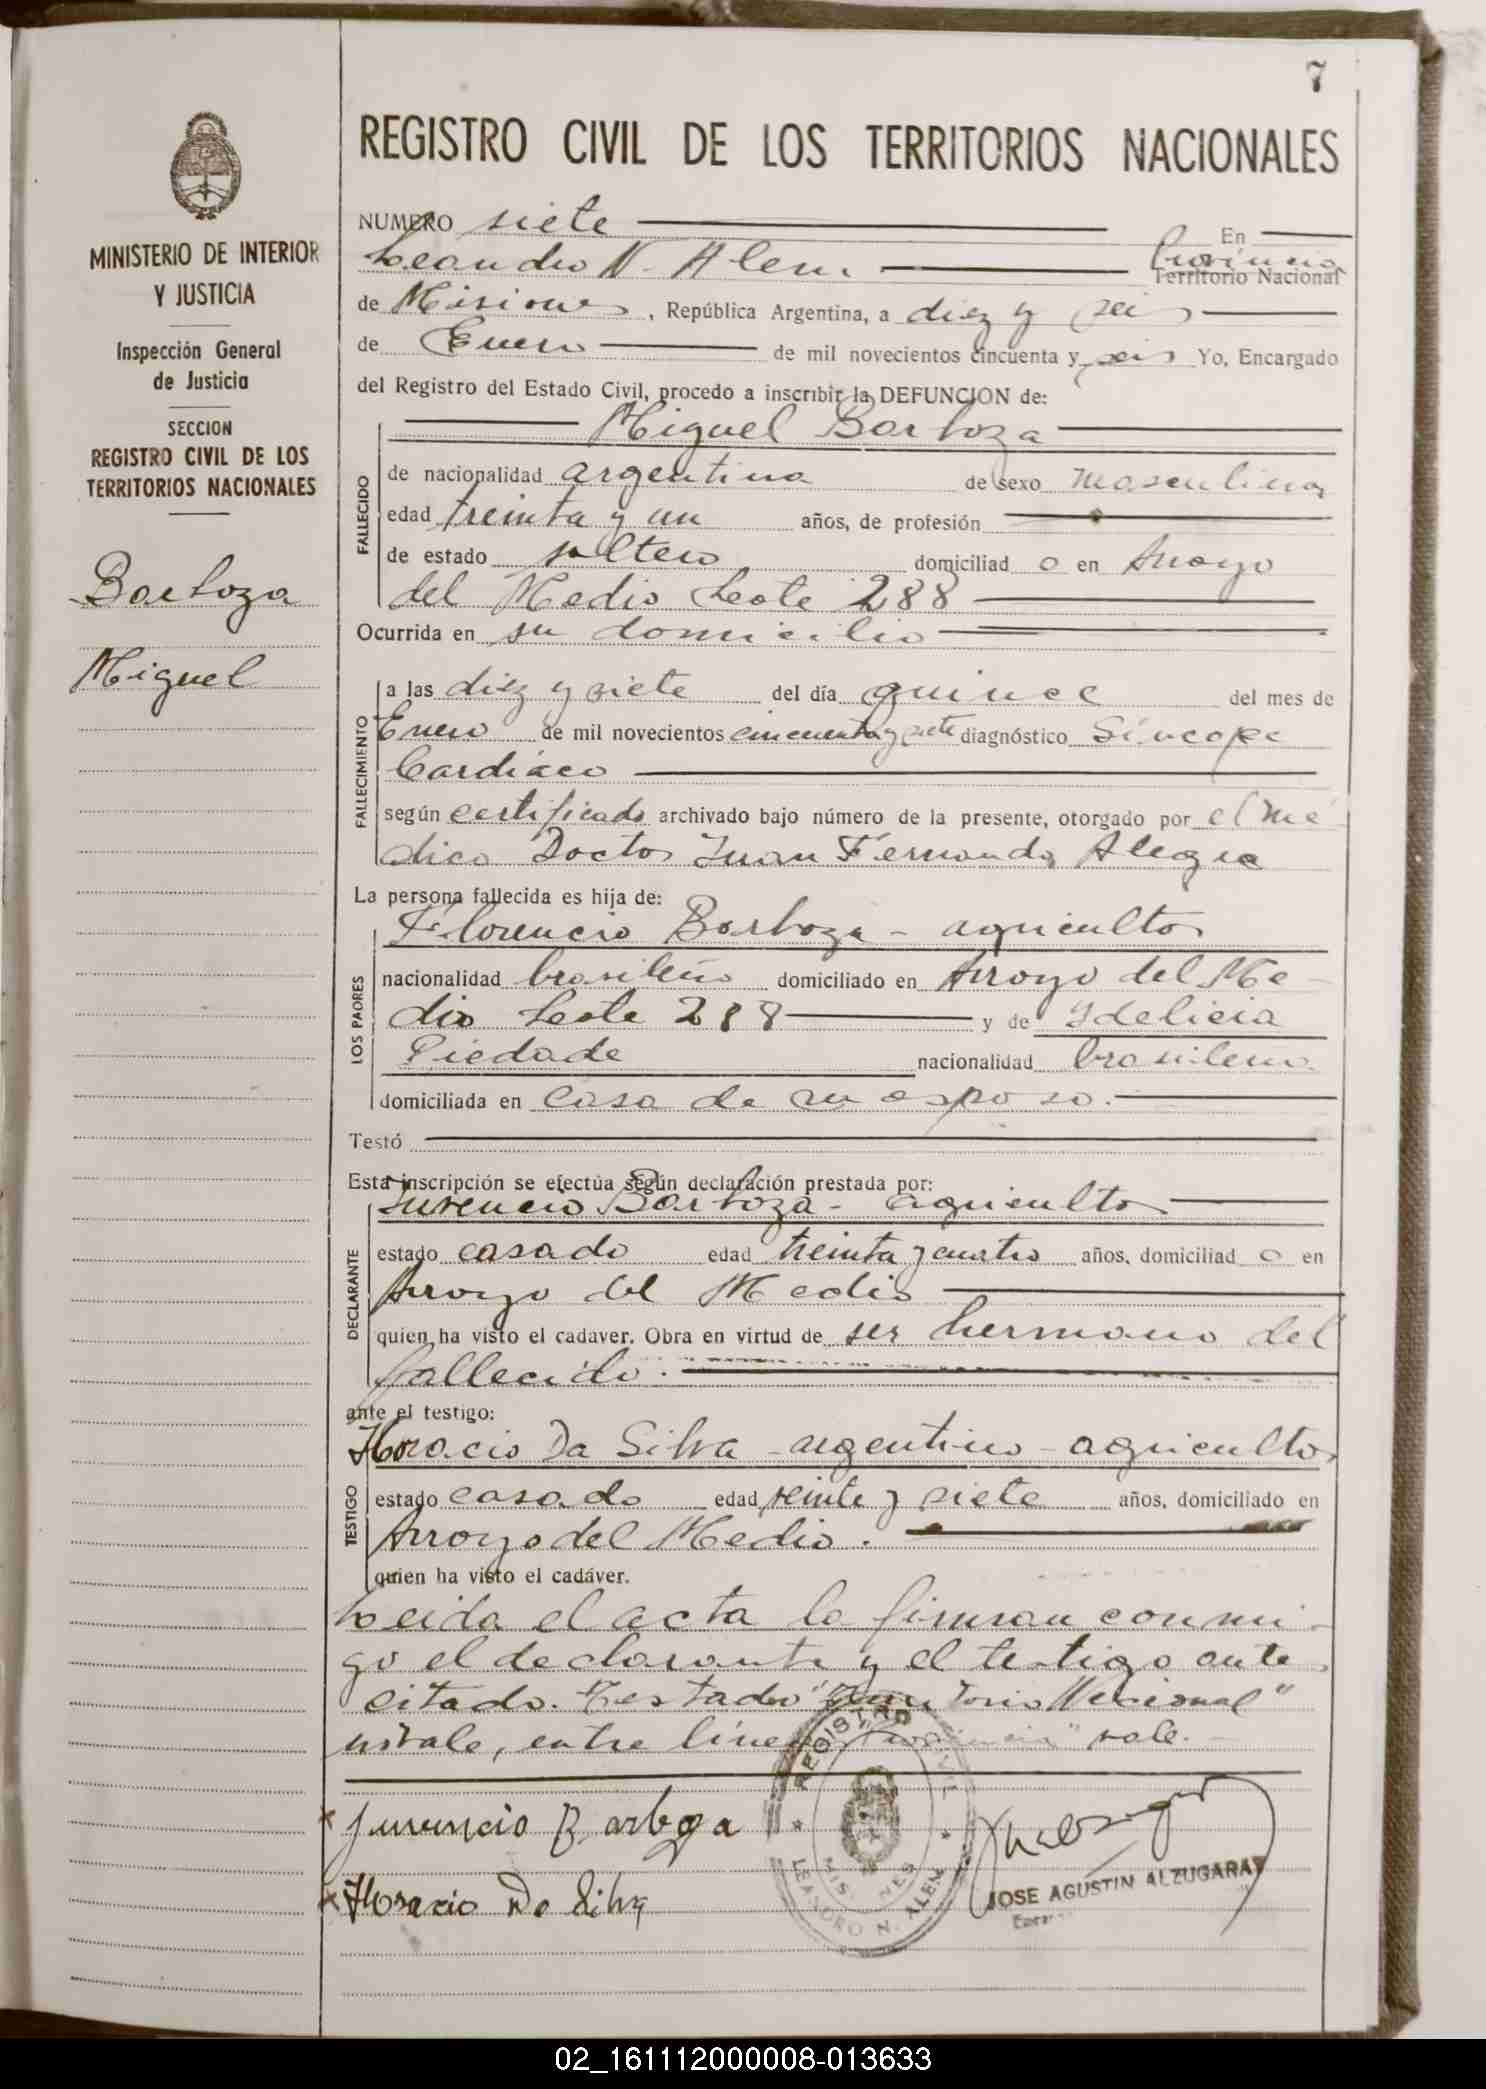 7
REGISTRO CIVIL DE LOS TERRITORIOS NACIONALES
MINISTERIO DE INTERIOR
Y JUSTICIA
Inspección General
de Justicia
SECCION
REGISTRO CIVIL DE LOS
TERRITORIOS NACIONALES
Barboza
Miguel
NUMERO siete En
Leandro N. Alem. Provincia
Territorio Nacional
de Misiones, República Argentina, a diez y seis
de Enero de mil novecientos cincuenta y seis Yo, Encargado
del Registro del Estado Civil, procedo a inscribir la DEFUNCION de:
Miguel Barboza
FALLECIDO
de nacionalidad argentina de sexo masculino
edad treinta y un años, de profesión
de estado soltero domiciliad o en Arroyo
del Medio Lote 288
Ocurrida en su domicilio
FALLECIMIENTO
a las diez y siete del día quince del mes de
Enero de mil novecientos cincuenta y siete diagnóstico Síncope
Cardíaco
según certificado archivado bajo número de la presente, otorgado por el mé
dico Doctor Juan Fernando Alegre
La persona fallecida es hija de:
LOS PADRES
Florencio Barboza - agricultor
nacionalidad brasileño domiciliado en Arroyo del Me-
dio Lote 288 y de Idelicia
Piedade nacionalidad brasilena
domiciliada en casa de su esposo.
Testó
Esta inscripción se efectúa según declaración prestada por:
DECLARANTE
Juvencio Barboza - agricultor
estado casado edad treinta y cuatro años, domiciliad o en
Arroyo del Medio
quien ha visto el cadaver. Obra en virtud de ser hermano del
fallecido.
ante el testigo:
TESTIGO
Horacio Da Silva - argentino - agricultor
estado casado edad veinte y siete años, domiciliado en
Arroyo del Medio.
quien ha visto el cadáver.
Leida el acta la firman conmi-
go el declarante y el testigo ante
citado. Testado "Territorio Nacional"
no vale, entre líneas "Provincia" vale.
Juvencio Barboza
Horacio Da Silva
REGISTRO CIVIL
MISIONES
LEANDRO N. ALEM
JOSE AGUSTIN ALZUGARAY
02_161112000008-013633